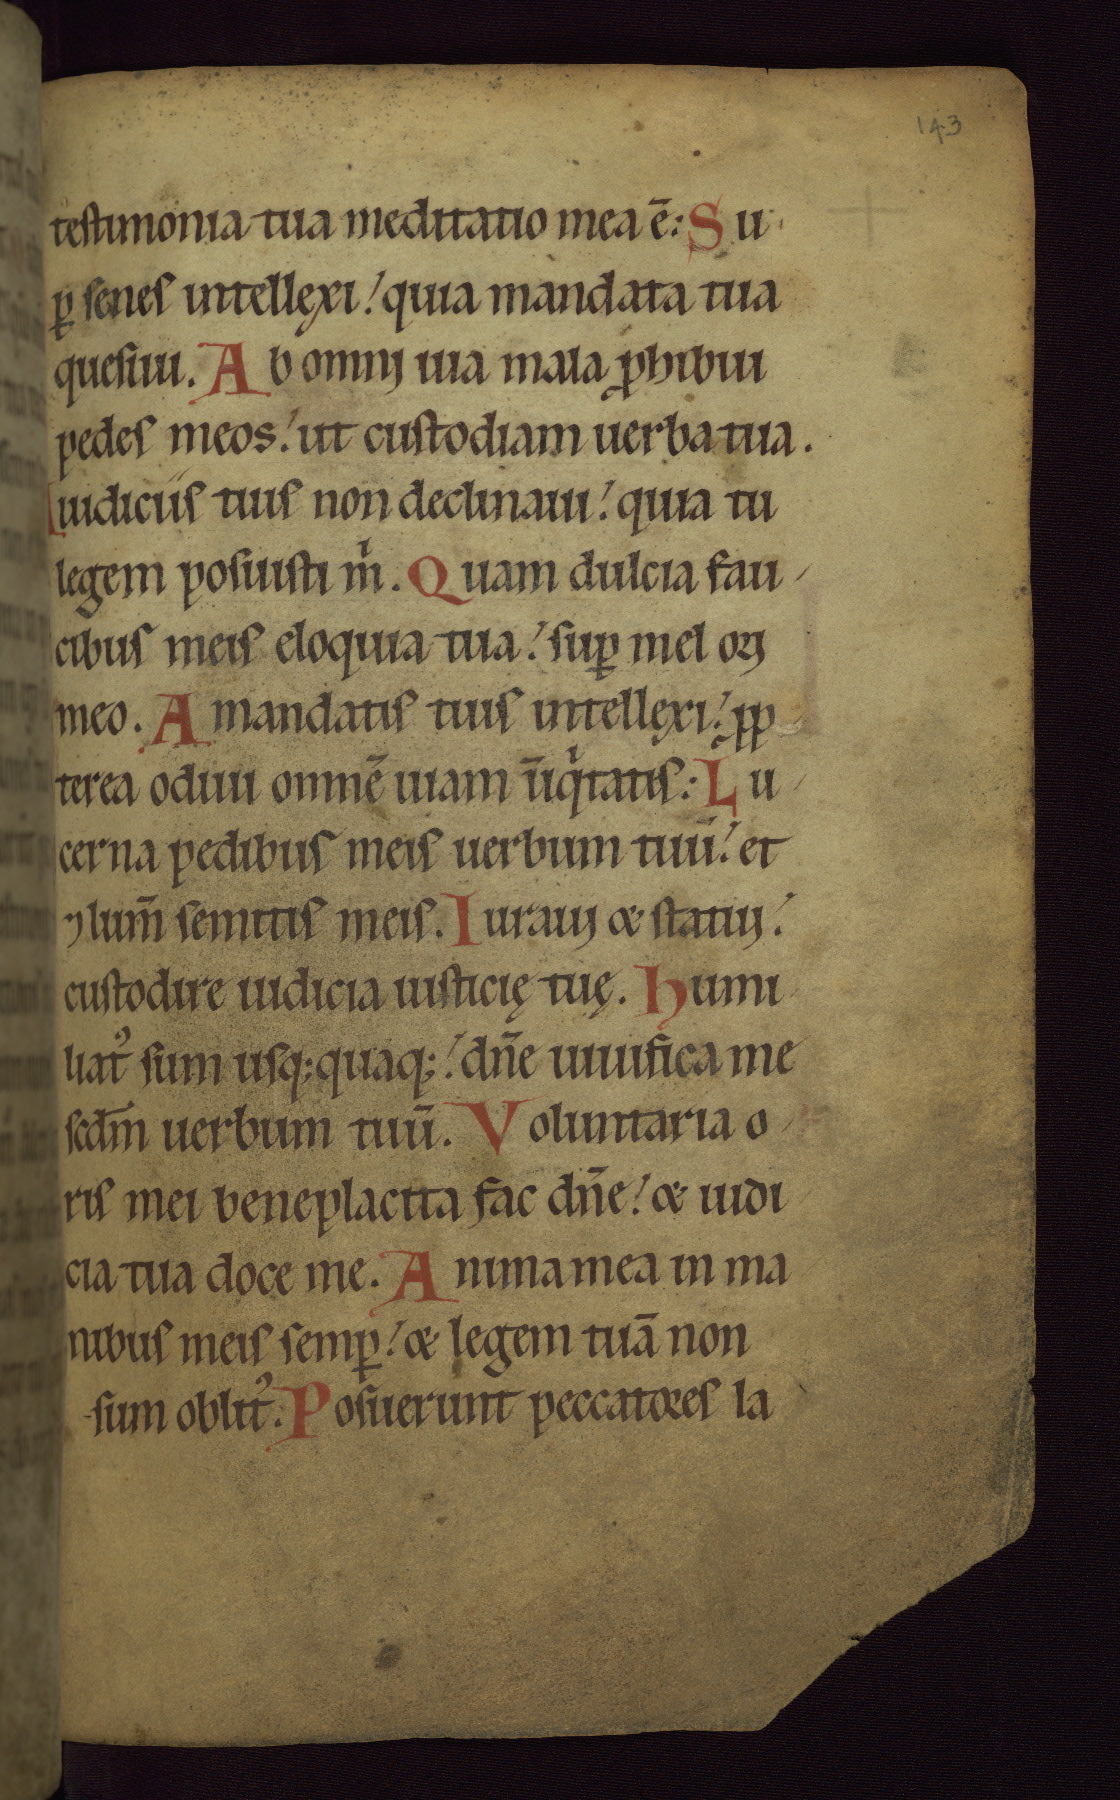 143
testimonia tua meditatio mea ē: Su
ꝑ senes intellexi! quia mandata tua
quesiui. Ab omnj uia mala ꝓhibui
pedes meos! ut custodiam uerba tua.
Iudiciis tuis non declinaui! quia tu
legem posuisti m̍. Quam dulcia fau
cibus meis eloquia tua! suꝑ mel orj
meo. A mandatis tuis intellexi! ꝓp
terea odiui omnē uiam iniq̍tatis: Lu
cerna pedibus meis uerbum tuū! et
lum̄ semitis meis. Iurauj & statuj!
custodire iudicia iusticię tuę. Humi
liatꝰ sum usq; quaq;! dn̄e uiuifica me
scdm̄ uerbum tuū. Voluntaria o
ris mei beneplacita fac dn̄e! & iudi
cia tua doce me. Anima mea in ma
nibus meis semꝑ! & legem tuā non
sum oblitꝰ. Posuerunt peccatores la